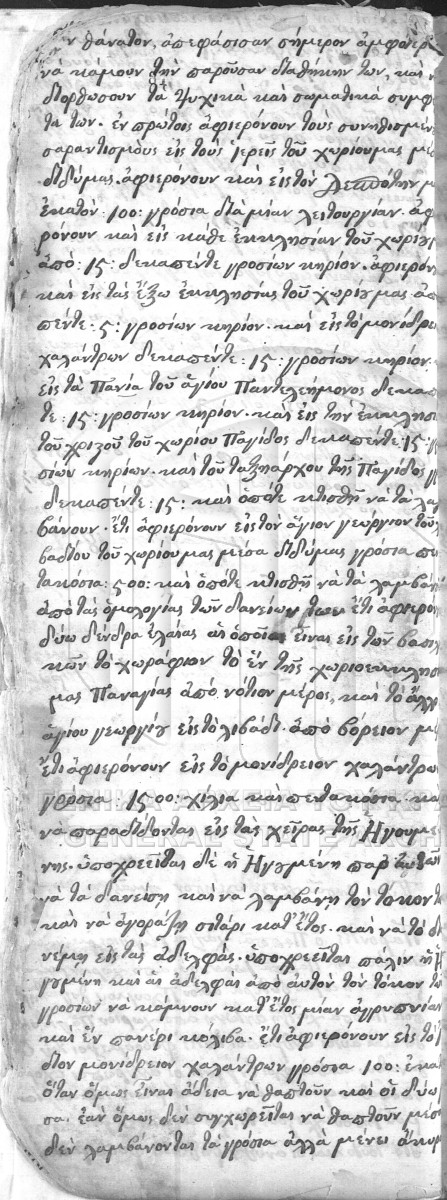 θάνατον, ἀπεφάσισαν σήμερον ἀμφότερ
νὰ κάμουν τὴν παροῦσαν διαθήκην των, καὶ ν
διορθώσουν τὰ ψυχικὰ καὶ σωματικὰ συμφ
τά των. ἐν πρώτοις ἀφιερόνουν τοὺς συνηθισμέν
σαρανταισμοὺς εἰς τοὺς ἱερεῖς τοῦ χωρίου μας μὲ
διδύμας. ἀφιερόνουν καὶ εἰς τὸν
ἑκατόν: 100: γρόσια διὰ μίαν λειτουργίαν. ἀφ
ρόνουν καὶ εἰς κάθε ἐκκλησίαν τοῦ χωρίου
ἀπὸ: 15: δεκαπέντε γροσίων κηρίον. ἀφιερόν
καὶ εἰς τὰς ἔξω ἐκκλησίας τοῦ χωρίου μας ἀπ
πέντε: 5: γροσίων κηρίον. καὶ εἰς τὸ μονίδρι
χαλάντρων δεκαπέντε: 15: γροσίων κηρίον.
εἰς τὰ Πανία τοῦ ἁγίου Παντελεήμονος δεκαπ
τε: 15: γροσίων κηρίον. καὶ εἰς τὴν ἐκκλησί
τοῦ χριζοῦ τοῦ χωρίου Παγίδος δεκαπέντε: 15: γρ
σίων κηρίον. καὶ τοῦ ταξηάρχου τῆς Παγίδος γρ
δεκαπέντε: 15: καὶ ὁπότε κτισθῇ νὰ τὰ λαμ
βάνουν. ἔτι ἀφιερόνουν εἰς τὸν ἅγιον γεώργιον τοῦ λ
βαδίου τοῦ χωρίου μας μέσα διδύμας γρόσια πε
τακόσια: 500: καὶ ὁπότε κτισθῇ νὰ τὰ λαμβάν
ἀπὸ τὰς ὁμολογίας τῶν δανείων των ἔτι ἀφιερόν
δύω δένδρα ἐλαίας αἱ ὁποῖαι εἶναι εἰς τῶν βασιλ
κῶν τὸ χωράφιον τὸ ἓν τῆς χωριοεκκλησι
μας Παναγίας ἀπὸ νότιον μέρος, καὶ τὸ ἄλλ
ἁγίου γεωργίου εἰς τὸ λιβάδι. ἀπὸ βόρειον μέ
ἔτι ἀφιερόνουν εἰς τὸ μονίδρειον χαλάντρω
γρόσια: 1500: χίλια καὶ πεντακόσια. κα
να παραδίδονται εἰς τὰς χεῖρας τῆς Ἡγουμέ
νης. ὑποχρεεῖται δὲ ἡ Ἡγουμένη παρ' αὐτῶν
νὰ τὰ δανείσῃ καὶ νὰ λαμβάνῃ τὸν τόκον τ
καὶ νὰ ἀγοράζῃ σιτάρι κατ' ἔτος. καὶ νὰ τὸ δι
νέμῃ εἰς τὰς ἀδελφάς. ὑποχρεεῖται πάλιν ἡ Ἡ
γουμένη καὶ αἱ ἀδελφαὶ ἀπὸ αὐτὸν τὸν τόκον τῶ
γροσίων νὰ κάμνουν κατ' ἔτος μίαν ἀγρυπνίαν
καὶ ἓν πανέρι κόλιβα. ἔτι ἀφιερόνουν εἰς τὸ ἴ
διον μονίδρειον χαλάντρων γρόσια 100: ἑκα
ὅταν ὅμως εἶναι ἄδεια νὰ θαπτοῦν καὶ οἱ δύω
σα. ἐὰν ὅμως δὲν συγχωρεῖται νὰ θαπτοῦν μέσ
δὲν λαμβάνονται τὰ γρόσια ἀλλὰ μένει ἄκυρ
ΓΕΝΙΚΑ ΑΡΧΕΙΑ ΤΟΥ ΚΡΑ
GENERAL STATE ARCH